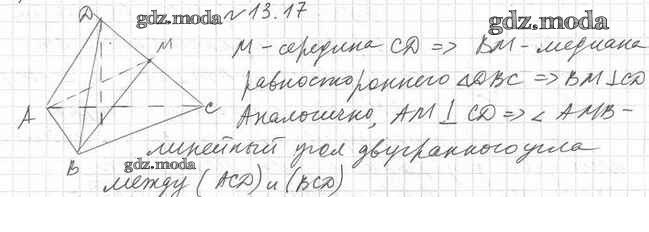 № 13.17
gdz.moda
gdz.moda
D
M
A
C
B
M - середина CD => BM - медиана
равностороннего △DBC => BM⊥CD
Аналогично, AM ⊥ CD => ∠ AMB -
линейный угол двугранного угла
gdz.moda
между (ACD) и (BCD)